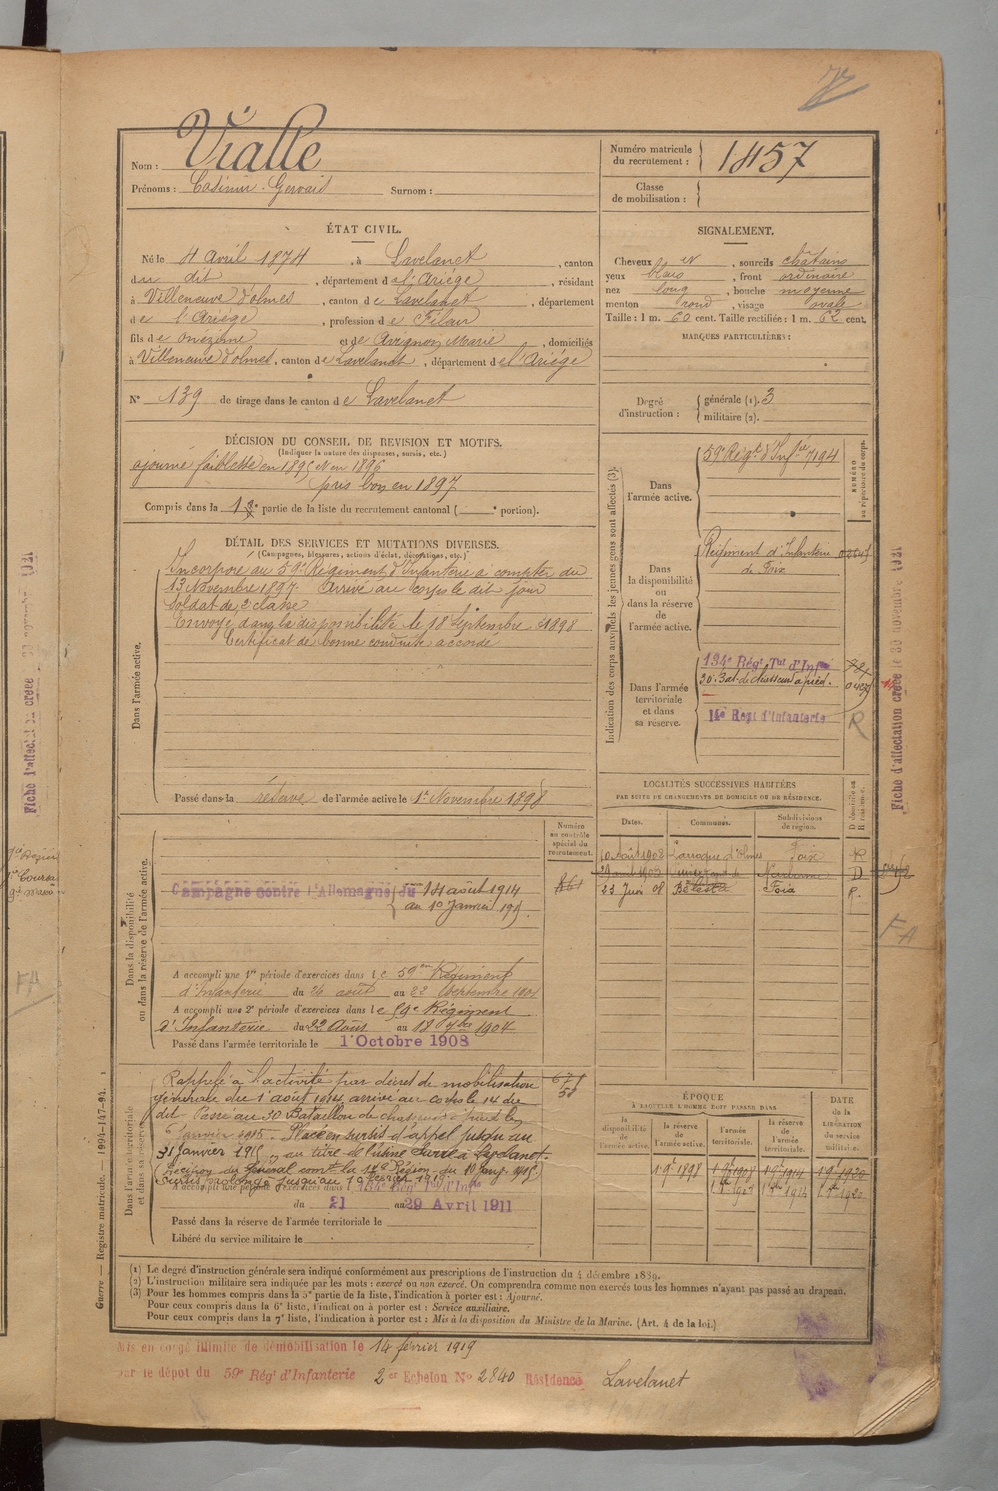 Nom : Vialle
Prénoms : Casimir Gervais Surnom :
Numéro matricule du recrutement : 1457
Classe de mobilisation :
ÉTAT CIVIL.
Né le 4 Avril 1874, à Lavelanet, canton
du dit, département de l'Ariége, résidant
à Villeneuve d'olmes, canton de Lavelanet, département
de l'Ariège, profession de Fileur
fils de Onézime et de Avignon Marie, domiciliés
à Villeneuve d'olmes, canton de Lavelanet, département de l'Ariége
N° 139 de tirage dans le canton de Lavelanet
SIGNALEMENT.
Cheveux et, sourcils châtains
yeux bleus, front ordinaire
nez long, bouche moyenne
menton rond, visage ovale
Taille : 1 m. 60 cent. Taille rectifiée : 1 m. 62 cent.
MARQUES PARTICULIÈRES :
Degré d'instruction : générale (1). 3
militaire (2).
DÉCISION DU CONSEIL DE REVISION ET MOTIFS.
(Indiquer la nature des dispenses, sursis, etc.)
ajourné faiblesse en 1895 et en 1896
pris bon en 1897
Compris dans la 1e partie de la liste du recrutement cantonal ( portion).
DÉTAIL DES SERVICES ET MUTATIONS DIVERSES.
(Campagnes, blessures, actions d'éclat, décorations, etc.)
Dans l'armée active.
Incorporé au 59e Régiment d'Infanterie à compter du
13 Novembre 1897. Arrivé au corps le dit jour
Soldat de 2e classe
Envoyé dans la disponibilité le 18 Septembre 1898
Certificat de bonne conduite accordé
Passé dans la réserve de l'armée active le 1er Novembre 1898
Indication des corps auxquels les jeunes gens sont affectés (3).
NUMÉRO au répertoire du corps.
Dans l'armée active.
59e Régt d'Infie 7194
Dans la disponibilité ou dans la réserve de l'armée active.
Régiment d'Infanterie
de Foix
Dans l'armée territoriale et dans sa réserve.
134e Régt Tal d'Infie
30e Bat. de chasseurs à pied.
14e Regt d'Infanterie
R
LOCALITÉS SUCCESSIVES HABITÉES
PAR SUITE DE CHANGEMENTS DE DOMICILE OU DE RÉSIDENCE.
Dates. Communes. Subdivisions de région. D domicile ou R résidence.
10 Août 1902 Laroque d'Olmes Foix R
D
23 Juin 08 Bélesta Foix R.
Dans la disponibilité ou dans la réserve de l'armée active.
Numéro au contrôle spécial du recrutement.
Campagne contre l'Allemagne du 14 août 1914
au 10 Janvier
A accompli une 1re période d'exercices dans le 59e Régiment
d'Infanterie du 26 août au 22 Septembre 1901
A accompli une 2e période d'exercices dans le 59e Régiment
d'Infanterie du 22 Août au 18 7bre 1904
Passé dans l'armée territoriale le 1er Octobre 1908
Dans l'armée territoriale et dans sa réserve
Rappelé à l'activité par décret de mobilisation
générale du 1er août 1914, arrivé au corps le 14 du
dit. Passé au 30 Bataillon de chasseurs à pied le
6 janvier 1915. Placé en sursis d'appel jusqu'au
31 janvier au titre de l'usine
Décision du Général comt la 17e Région du
Sursis prolongé jusqu'au
A accompli une période d'exercices dans l 134e Régt Tal d'Infie
du 21 au 29 Avril 1911
Passé dans la réserve de l'armée territoriale le
Libéré du service militaire le
ÉPOQUE
À LAQUELLE L'HOMME DOIT PASSER DANS
la disponibilité de l'armée active. la réserve de l'armée active. l'armée territoriale. la réserve de l'armée territoriale. DATE de la LIBÉRATION du service militaire.
1 9bre 1898 1 9bre 1908 1 9bre 1914 1 9bre 1920
(1) Le degré d'instruction générale sera indiqué conformément aux prescriptions de l'instruction du 4 décembre 1889.
(2) L'instruction militaire sera indiquée par les mots : exercé ou non exercé. On comprendra comme non exercés tous les hommes n'ayant pas passé au drapeau.
(3) Pour les hommes compris dans la 5e partie de la liste, l'indication à porter est : Ajourné.
Pour ceux compris dans la 6e liste, l'indication à porter est : Service auxiliaire.
Pour ceux compris dans la 7e liste, l'indication à porter est : Mis à la disposition du Ministre de la Marine. (Art. 4 de la loi.)
Mis en congé illimité de démobilisation le 14 février 1919
par le dépôt du 59e Régt d'Infanterie 2e Echelon N° 2840 Résidence Lavelanet
Guerre — Registre matricule. — 1994-147-94.
Fiche d'affectation créée le 30 novembre 1931
FA
FA